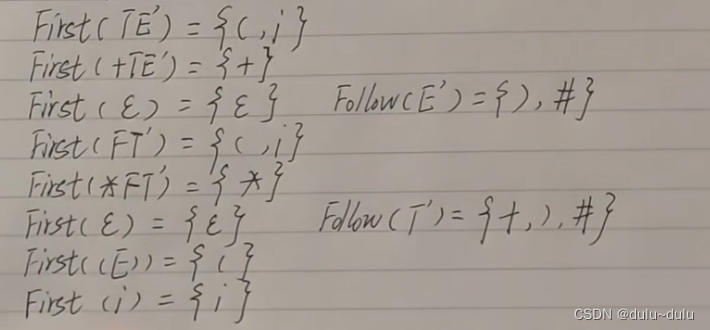 First(TE′)={(,i}
First(+TE′)={+}
First(ε)={ε} Follow(E′)={),#}
First(FT′)={(,i}
First(*FT′)={*}
First(ε)={ε} Follow(T′)={+,),#}
First((E))={(}
First(i)={i}
CSDN @dulu~dulu